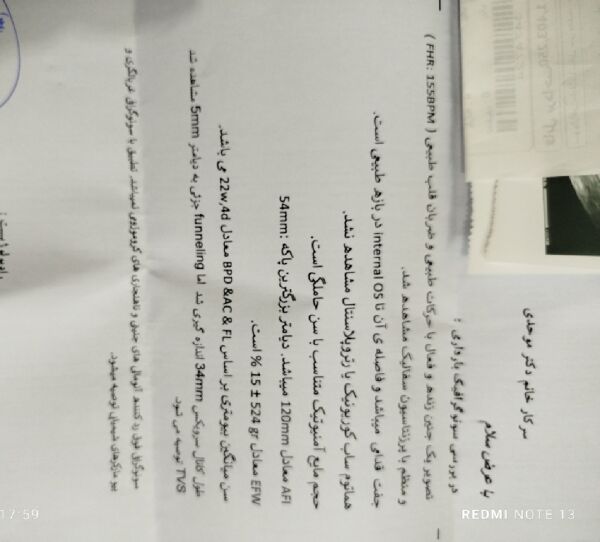 سرکار خانم دکتر موحدی
با عرض سلام
در بررسی سونوگرافیک بارداری :
تصویر یک جنین زنده و فعال با حرکات طبیعی و ضربان قلب طبیعی ( FHR: 155BPM )
و منظم با پرزنتاسیون سفالیک مشاهده شد.
جفت قدامی میباشد و فاصله ی آن تا internal OS در بازه طبیعی است.
هماتوم ساب کوریونیک یا رتروپلاسنتال مشاهده نشد.
حجم مایع آمنیوتیک متناسب با سن حاملگی است.
AFI معادل 120mm میباشد. دیامتر بزرگترین پاکه :54mm
EFW معادل 524 gr ± 15 % است.
سن میانگین بیومتری بر اساس BPD &AC & FL معادل 22w,4d می باشد.
طول کانال سرویکس 34mm اندازه گیری شد اما funneling جزئی به دیامتر 5mm مشاهده شد
TVS توصیه می شود.
سونوگرافی فوق رد کننده آنومالی های جنینی و ناهنجاری های کروموزومی نمیباشد. تطبیق با سونوگرافی غربالگری و
بیو مارکرهای شیمیایی توصیه میشود.
17:59
REDMI NOTE 13